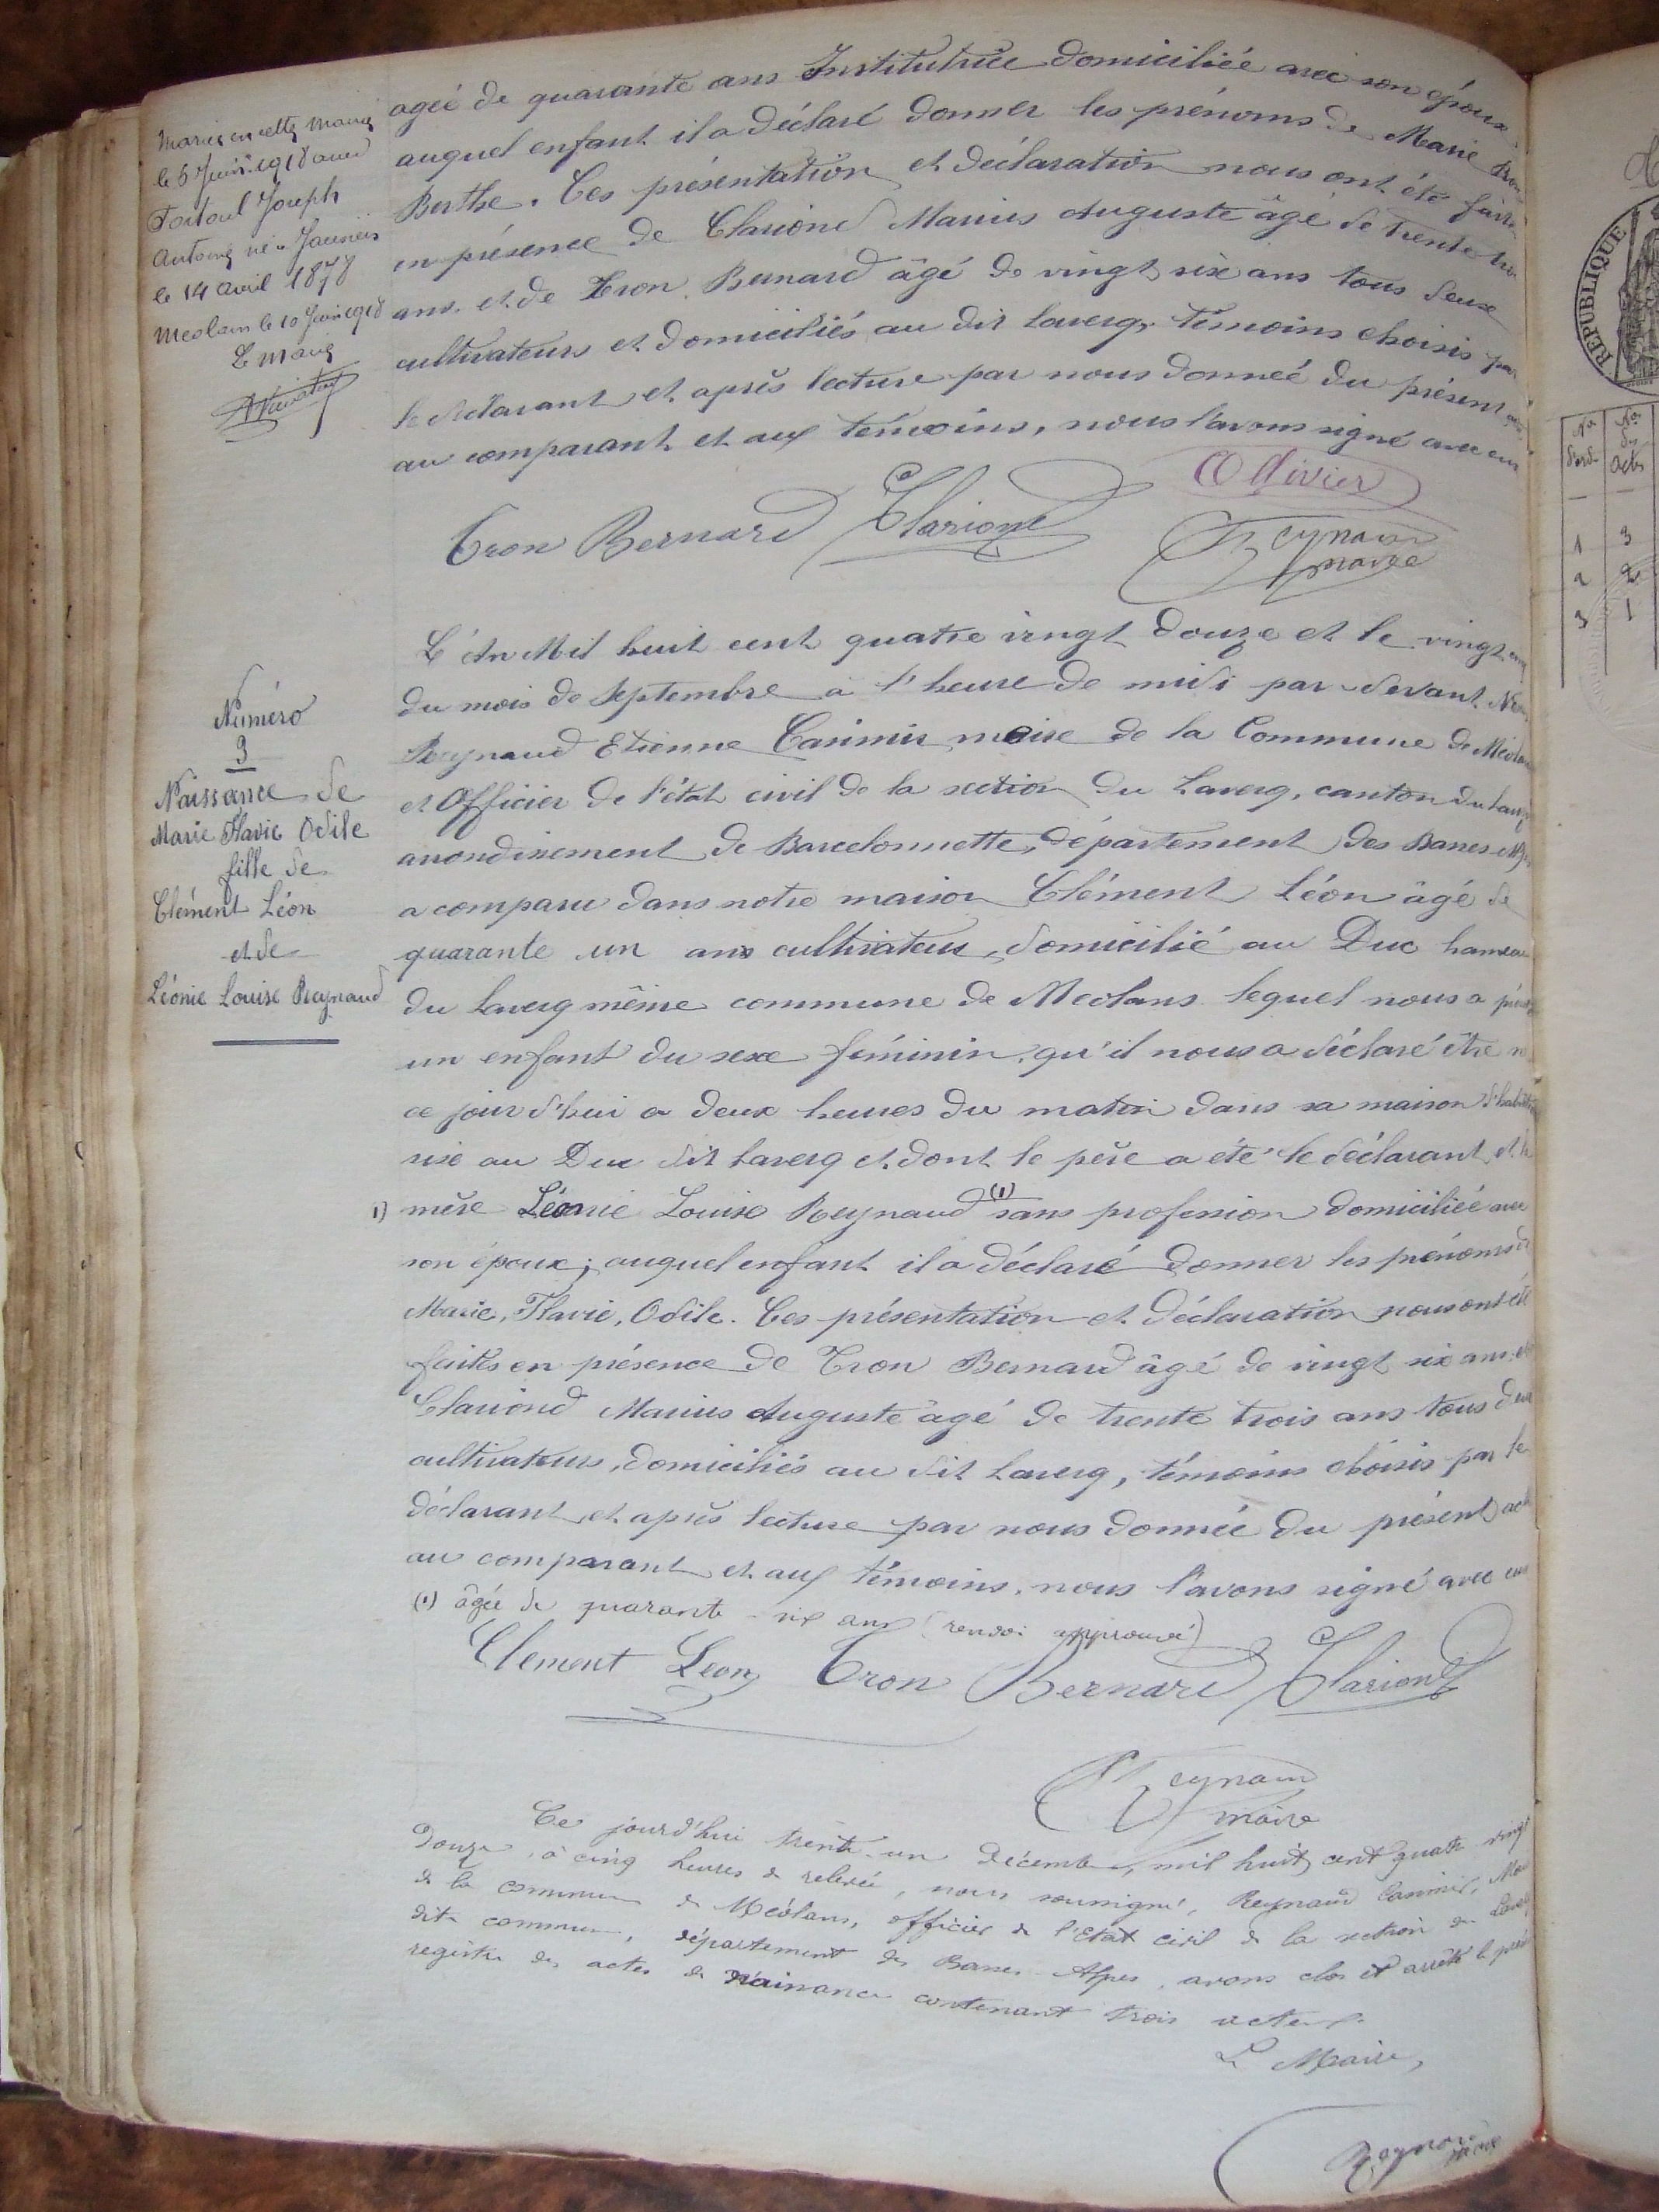 Mariée en cette mairie
le 6 Juin 1918 avec
Fortoul Joseph
Antoine né à Jausiers
le 14 avril 1878
Meolans le 10 Juin 1918
Le Maire
agée de quarante ans Institutrice domiciliée avec son époux
auquel enfant il a déclaré donner les prénoms de Marie
Berthe. Ces présentation et déclaration nous ont été faites
en présence de Clariond Marius Auguste âgé de trente trois
ans. et de Tron Bernard âgé de vingt six ans tous deux
cultivateurs et domiciliés au dit Laverq, témoins choisis par
le déclarant et après lecture par nous donnée du présent acte
au comparant et aux témoins, nous l'avons signé avec eux
Ollivier
Tron Bernard Clariond Reynaud
maire
Numéro
3
Naissance de
Marie Flavie Odile
fille de
Clément Léon
et de
Léonie Louise Reynaud
L'An Mil huit cent quatre vingt douze et le vingt
du mois de Septembre à l'heure de midi par devant Nous
Reynaud Etienne Casimir maire de la Commune de Méolans
et Officier de l'état civil de la section du Laverq, canton du Lauzet
arrondissement de Barcelonnette, département des Basses-Alpes
a comparu dans notre maison Clément Léon âgé de
quarante un ans cultivateur, domicilié au Duc hameau
du Laverq même commune de Meolans lequel nous a présenté
un enfant du sexe féminin, qu'il nous a déclaré être né
ce jour d'hui a deux heures du matin dans sa maison d'habitation
sise au Duc dit Laverq et dont le père a été le déclarant et la
1) mère Léonie Louise Reynaud (1) sans profession domiciliée avec
son époux; auquel enfant il a déclaré donner les prénoms de
Marie, Flavie, Odile. Ces présentation et déclaration nous ont été
faites en présence de Tron Bernard âgé de vingt six ans et
Clariond Marius Auguste âgé de trente trois ans tous deux
cultivateurs, domiciliés au dit Laverq, témoins choisis par le
déclarant et après lecture par nous donnée du présent acte
au comparant et aux témoins, nous l'avons signé avec eux
(1) âgée de quarante-six ans (renvoi approuvé)
Clement Leon Tron Bernard Clariond
Reynaud
maire
Ce jourd'hui trente-un décembre, mil huit cent quatre-vingt
douze, à cinq heures de relevée, nous soussigné, Reynaud Casimir, Maire
de la commune de Méolans, officier de l'Etat civil de la section du Laverq
dite commune, département des Basses-Alpes, avons clos et arrêté le présent
registre des actes de naissance contenant trois actes.
Le Maire,
Reynaud
maire
REPUBLIQUE
Nos
d'ordre
Nos
des
Actes
1 3
2 2
3 1